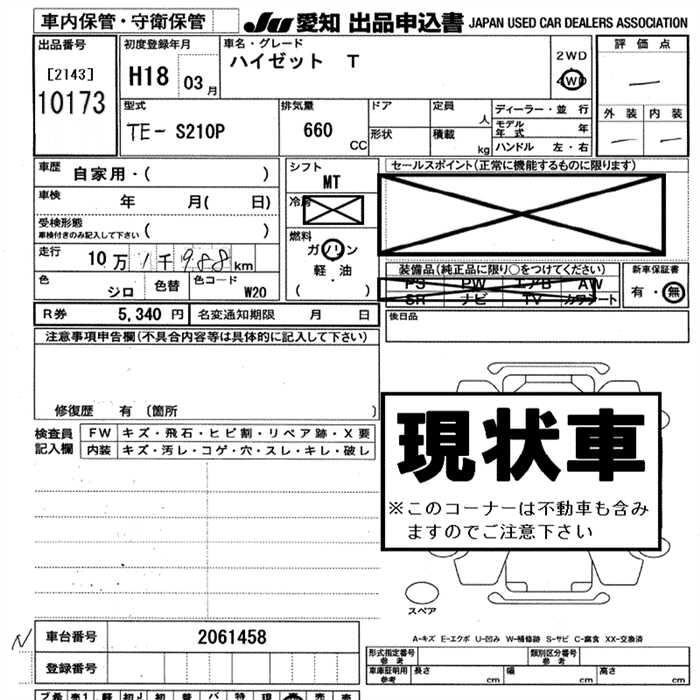 車内保管・守衛保管 JU 愛知 出品申込書 JAPAN USED CAR DEALERS ASSOCIATION
出品番号 初度登録年月 車名・グレード 評価点
[2143] H18 03月 ハイゼット T 2WD
10173 4WD
型式 排気量 ドア 定員 人 ディーラー・並 行 外装 内装
TE- S210P 660 CC 形状 積載 kg モデル年式 年
ハンドル 左・右
車歴 自家用・( ) シフト MT セールスポイント(正常に機能するものに限ります)
車検 年 月( 日) 冷房
受検形態 ( ) 燃料
車検付きのみ記入して下さい ガソリン
走行 10万1千988km 軽・油 装備品(純正品に限り○をつけてください) 新車保証書
色 シロ 色替 色コード W20 ( ) PS PW エアB AW 有・無
SR ナビ TV カワシート
R券 5,340円 名変通知期限 月 日 後日品
注意事項申告欄(不具合内容等は具体的に記入して下さい)
修復歴 有 〔箇所 〕
検査員 FW キズ・飛石・ヒビ割・リペア跡・X要
記入欄 内装 キズ・汚レ・コゲ・穴・スレ・キレ・破レ
現状車
※このコーナーは不動車も含み
ますのでご注意下さい
スペア
N 車台番号 2061458
A-キズ E-エクボ U-凹み W-補修跡 S-サビ C-腐食 XX-交換済
登録番号 形式指定番号 参考 類別区分番号 参考
車庫証明用 参考 長さ cm 幅 cm 高さ cm